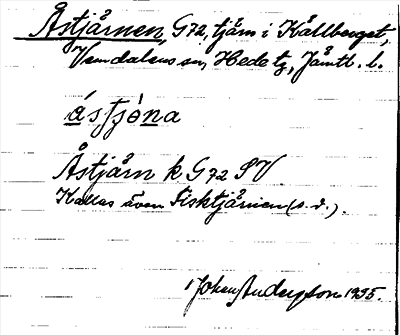 Åstjärnen, G72, tjärn i Källberget,
Vemdalens sn, Hede tg, Jämtl. l.
ástjǝ̀na
Åstjärn k G72 SV
Kallas även Fisktjärnen (s. d.).
Johan Anderson 1935.